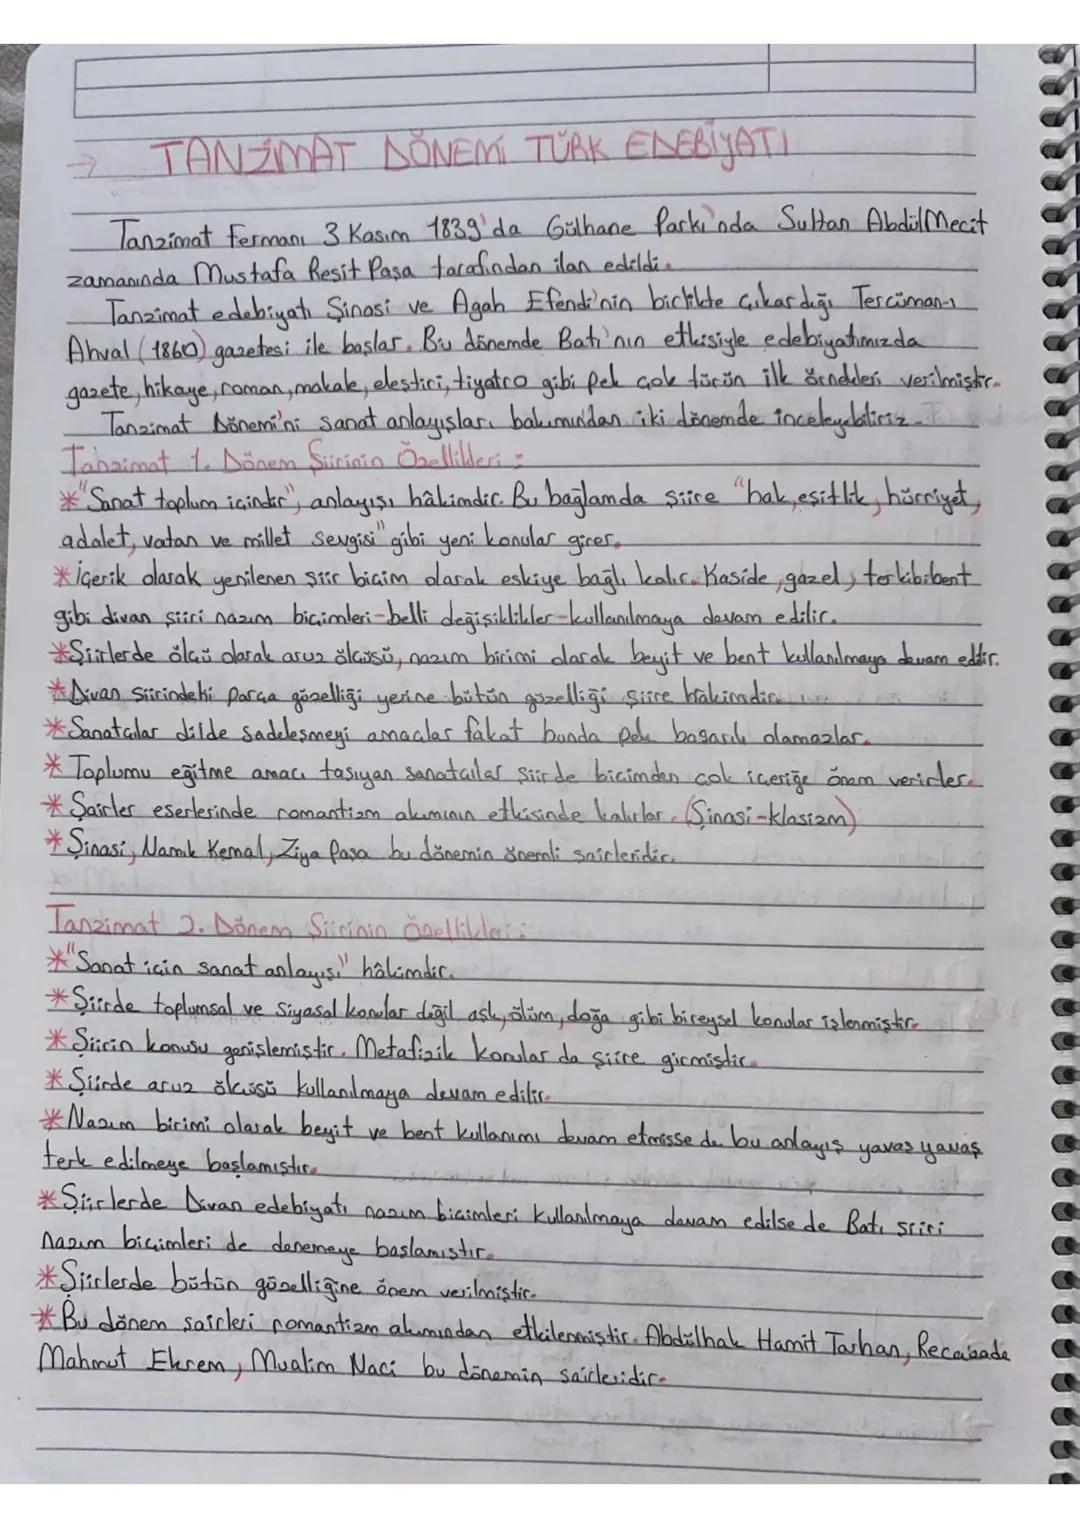 → TANZİMAT DÖNEMİ TÜRK EDEBİYATI
Tanzimat Fermanı 3 Kasım 1839'da Gülhane Parkı'nda Sultan AbdülMecit
zamanında Mustafa Reşit Paşa tarafından ilan edildi.
Tanzimat edebiyatı Şinasi ve Agah Efendi'nin birlikte çıkardığı Tercüman-ı
Ahval (1860) gazetesi ile başlar. Bu dönemde Batı'nın etkisiyle edebiyatımızda
gazete, hikaye, roman, makale, eleştiri, tiyatro gibi pek çok türün ilk örnekleri verilmiştir.
Tanzimat Dönemi'ni sanat anlayışları bakımından iki dönemde inceleyebiliriz.
Tanzimat 1. Dönem Şiirinin Özellikleri :
* "Sanat toplum içindir", anlayışı hâkimdir. Bu bağlamda şiire "hak, eşitlik, hürriyet,
adalet, vatan ve millet sevgisi" gibi yeni konular girer.
* İçerik olarak yenilenen şiir biçim olarak eskiye bağlı kalır. Kaside, gazel, terkibibent
gibi divan şiiri nazım biçimleri-belli değişiklikler-kullanılmaya devam edilir.
* Şiirlerde ölçü olarak aruz ölçüsü, nazım birimi olarak beyit ve bent kullanılmaya devam edilir.
* Divan şiirindeki parça güzelliği yerine bütün güzelliği şiire hakimdir.
* Sanatçılar dilde sadeleşmeyi amaçlar fakat bunda pek başarılı olamazlar.
* Toplumu eğitme amacı taşıyan sanatçılar şiirde biçimden çok içeriğe önem verirler.
* Şairler eserlerinde romantizm akımının etkisinde kalırlar. (Şinasi-klasizm)
* Şinasi, Namık Kemal, Ziya Paşa bu dönemin önemli şairleridir.
Tanzimat 2. Dönem Şiirinin Özellikleri :
* "Sanat için sanat anlayışı" hâkimdir.
* Şiirde toplumsal ve siyasal konular değil aşk, ölüm, doğa gibi bireysel konular işlenmiştir.
* Şiirin konusu genişlemiştir. Metafizik konular da şiire girmiştir.
* Şiirde aruz ölçüsü kullanılmaya devam edilir.
* Nazım birimi olarak beyit ve bent kullanımı devam etmişse de bu anlayış yavaş yavaş
terk edilmeye başlamıştır.
* Şiirlerde Divan edebiyatı nazım biçimleri kullanılmaya devam edilse de Batı şiiri
nazım biçimleri de denemeye başlamıştır.
* Şiirlerde bütün güzelliğine önem verilmiştir.
* Bu dönem şairleri romantizm akımından etkilenmiştir. Abdülhak Hamit Tarhan, Recaizade
Mahmut Ekrem, Mualim Naci bu dönemin şairleridir.